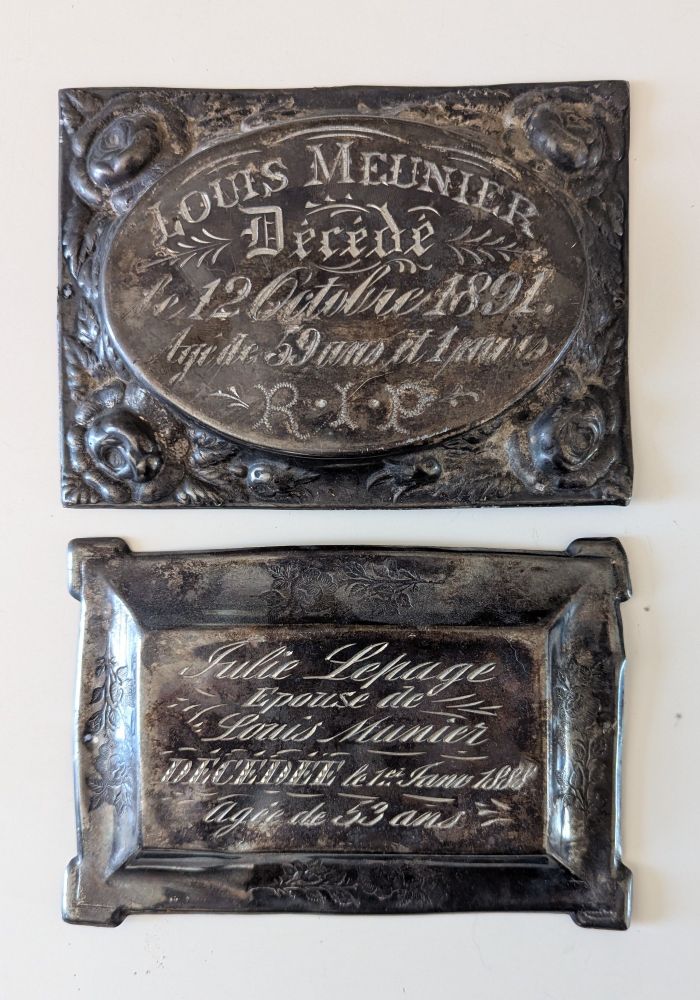 LOUIS MEUNIER
Décédé
le 12 Octobre 1891.
Agé de 59 ans et 1 mois
R·I·P
Julie Lepage
Epouse de
Louis Munier
DÉCÉDÉE le 1er Janv 1888
Agée de 53 ans